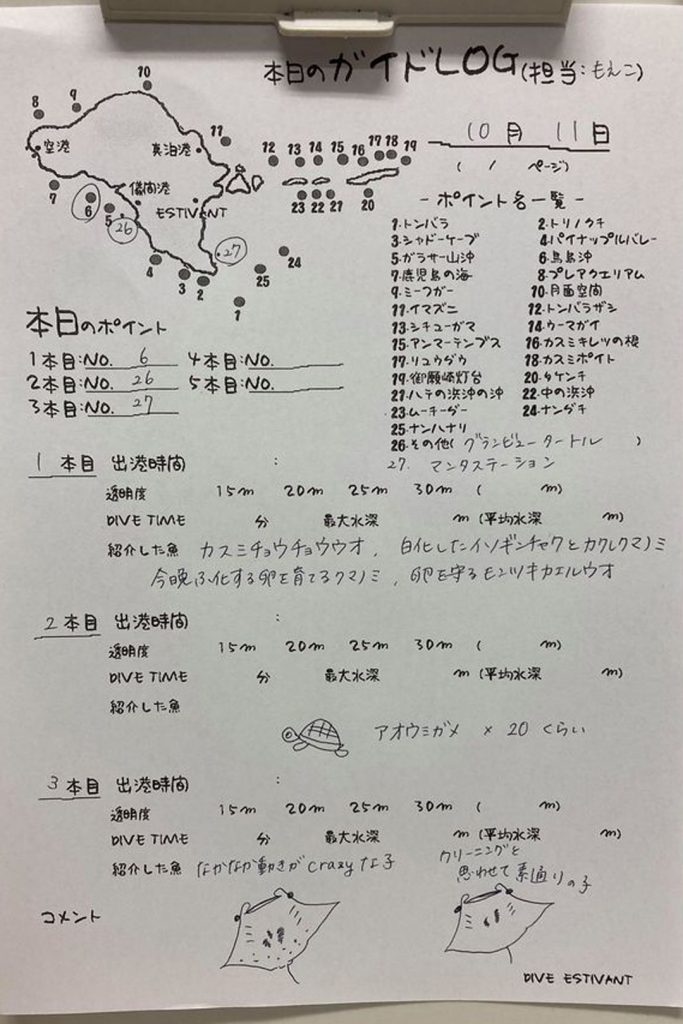 本日のガイドLOG(担当:もえこ)
10月 11日
( / ページ)
10
8
9
空港
真泊港
11
12
13
14
15
16
17
18
19
儀間港
7
6
5
ESTIVANT
26
23
22
21
20
27
24
4
3
2
25
1
- ポイント名一覧 -
1.トンバラ 2.トリノクチ
3.シャドーケーブ 4.パイナップルバレー
5.ガラサー山沖 6.鳥島沖
7.鹿児島の海 8.プレアクエリアム
9.ミーフガー 10.月面空間
11.イマズニ 12.トンバラザシ
13.シチューガマ 14.ウーマガイ
15.アンマーテンブス 16.カスミキレツの根
17.リュウグウ 18.カスミポイト
19.御願崎灯台 20.タケンチ
21.ハテの浜沖の沖 22.中の浜沖
23.ムーチーグー 24.ナンダチ
25.ナンハナリ
26.その他( グランビュータートル )
27. マンタステーション
本日のポイント
1本目:NO. 6 4本目:NO.
2本目:NO. 26 5本目:NO.
3本目:NO. 27
1 本目 出港時間 :
透明度 15m 20m 25m 30m ( m)
DIVE TIME 分 最大水深 m (平均水深 m)
紹介した魚 カスミチョウチョウウオ, 白化したイソギンチャクとカクレクマノミ
今晩ふ化する卵を育てるクマノミ, 卵を守るモンツキカエルウオ
2 本目 出港時間 :
透明度 15m 20m 25m 30m ( m)
DIVE TIME 分 最大水深 m (平均水深 m)
紹介した魚
アオウミガメ × 20 くらい
3 本目 出港時間 :
透明度 15m 20m 25m 30m ( m)
DIVE TIME 分 最大水深 m (平均水深 m)
紹介した魚 なかなか動きがcrazyな子
クリーニングと
思わせて素通りの子
コメント
DIVE ESTIVANT